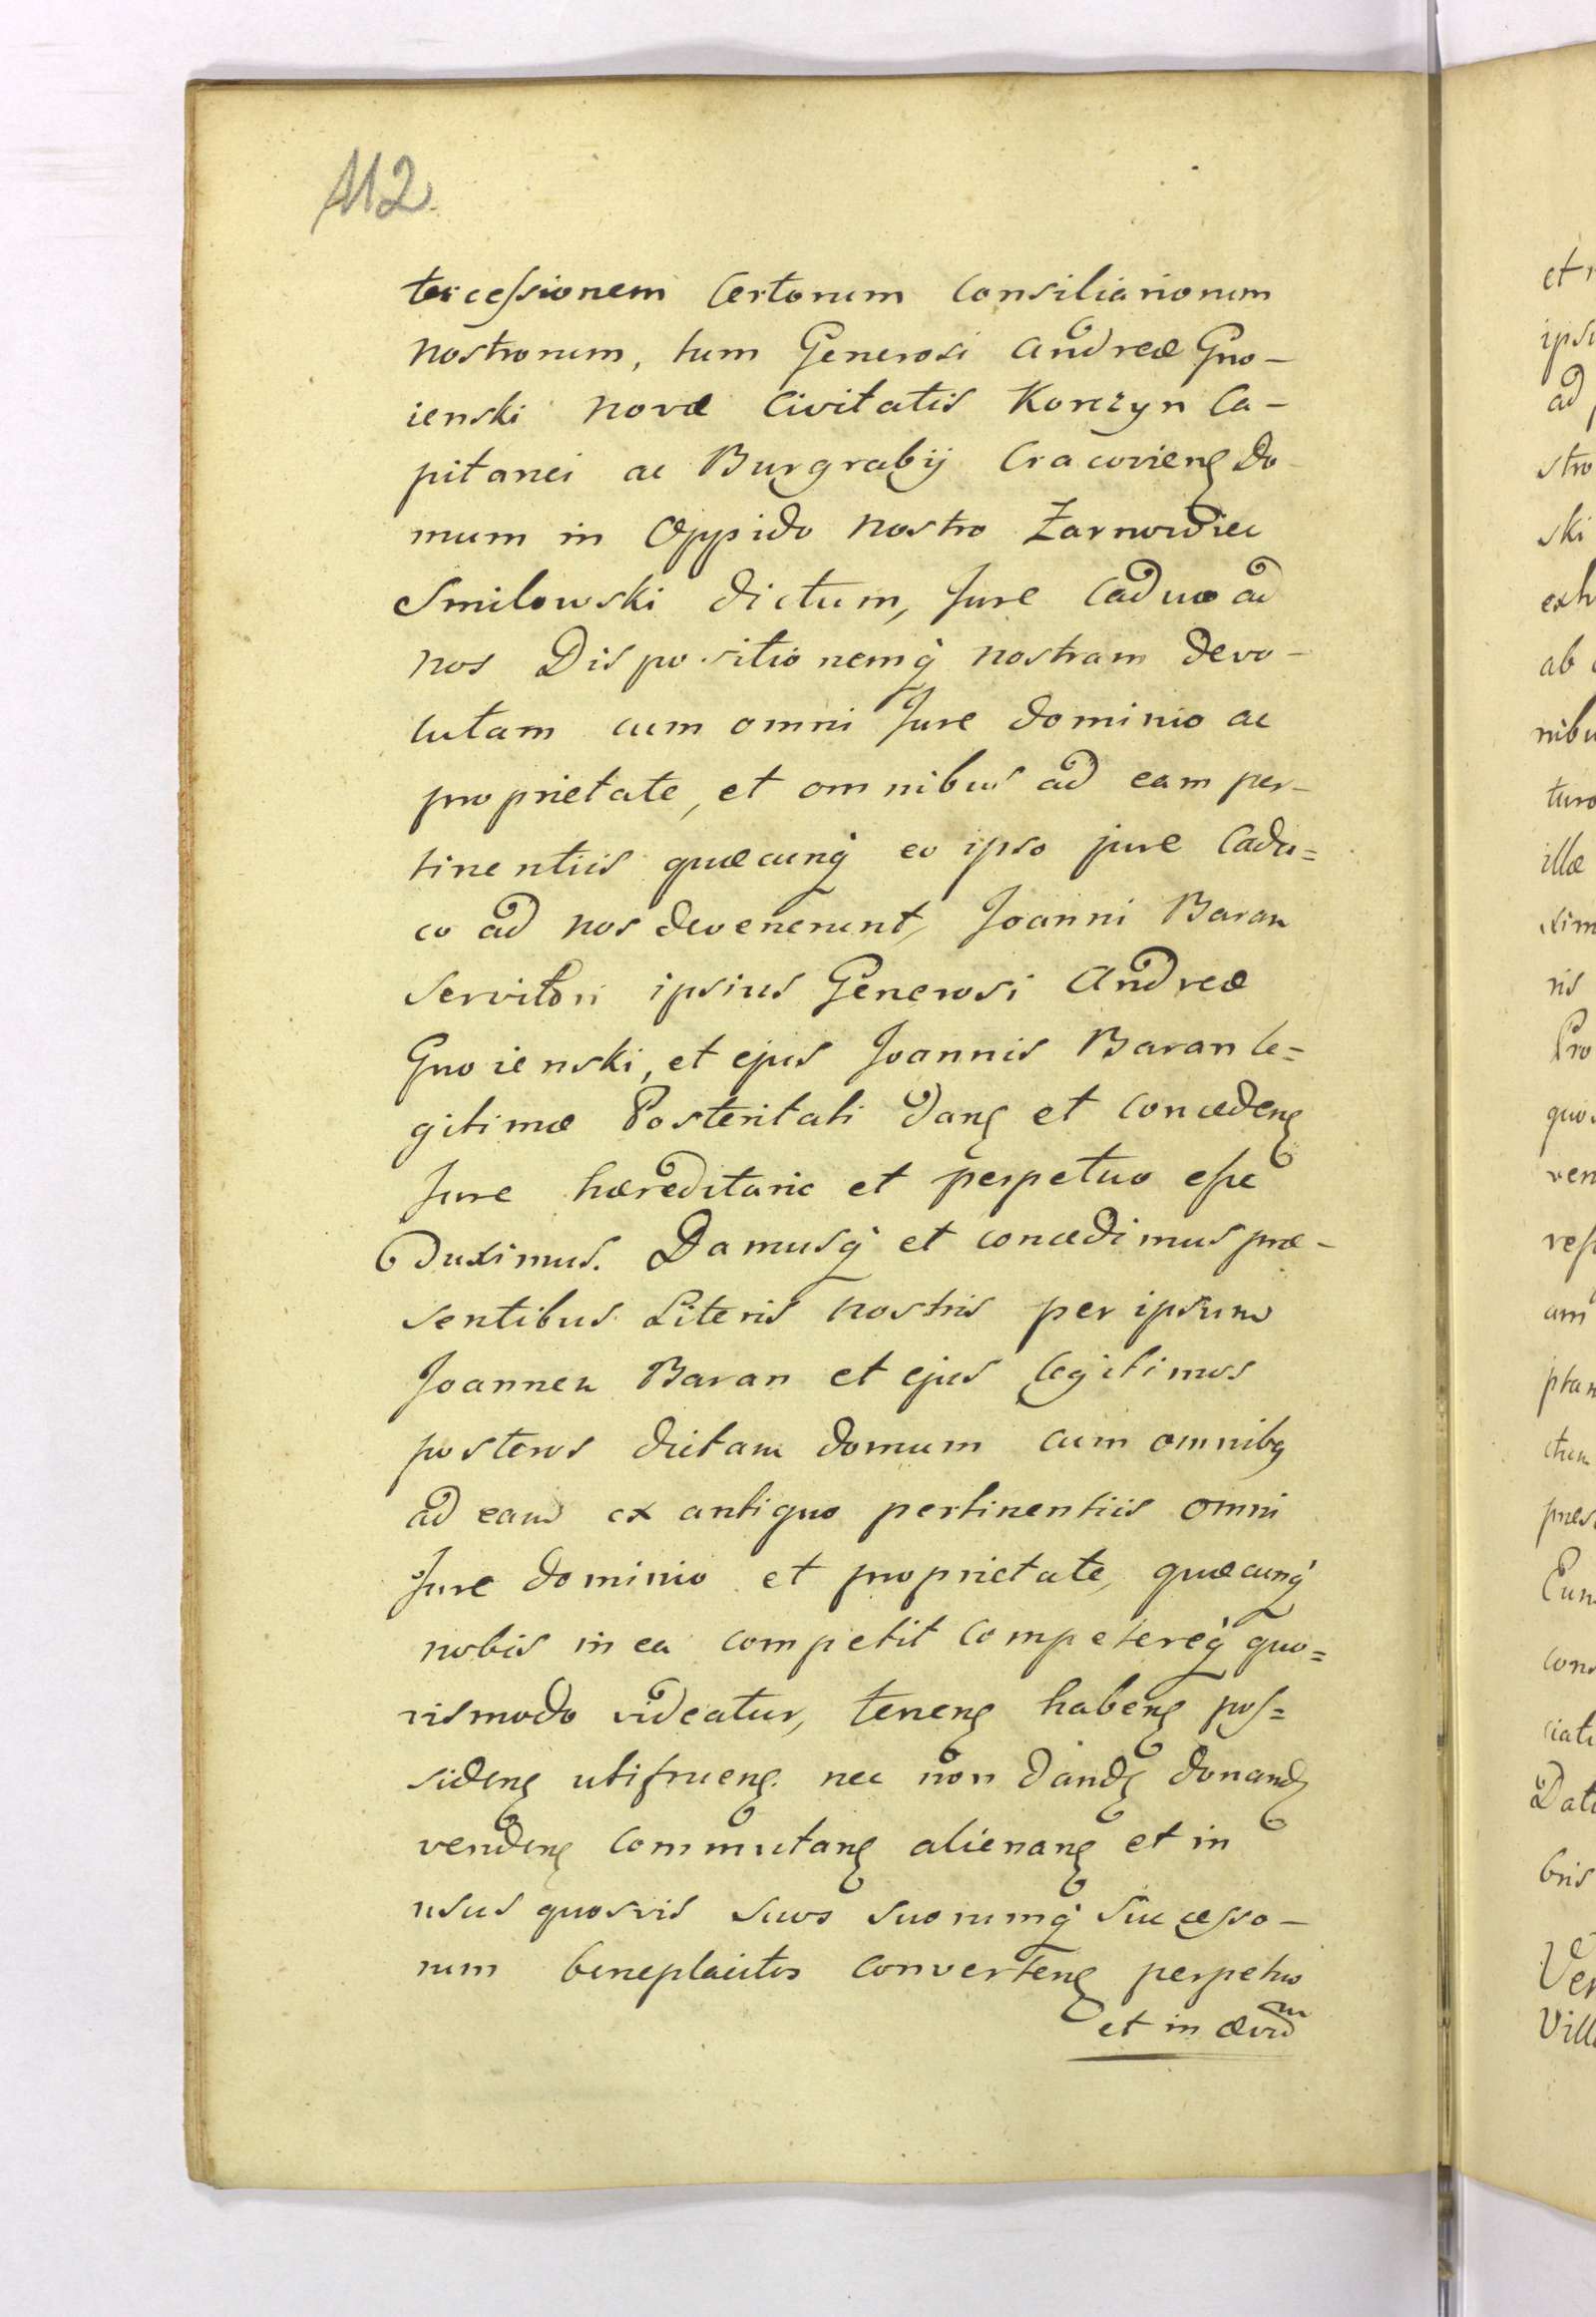 112.
tercessionem Certorum Consiliariorum
nostrorum, tum Generosi Andreæ Gno-
ienski novæ Civitatis Korczyn Ca-
pitanei ac Burgrabij Cracovieng Do-
mum in Oppido nostro Żarnowiec
Smilowski dictum, Jure Caduco ad
nos Dispositionemq nostram devo-
lutam cum omni Jure dominio ac
proprietate, et omnibus ad eam per-
tinentiis quæcunq eo ipso jure Cadu=
co ad nos devenerunt, Joanni Baran
Servitori ipsius Generosi Andreæ
Gnoienski, et ejus Joannis Baran le=
gitimæ Posteritati dang et concedeng
Jure hæreditario et perpetuo esse
Duximus. Damusq et concedimus præ-
sentibus Literis nostris per ipsum
Joannem Baran et ejus legitimos
posteros dictam domum cum omnibg
ad eam ex antiquo pertinentiis omni
Jure dominio et proprietate, quæcunq
nobis in ea competit competereq quo=
vismodo videatur, teneng habeng pos=
sideng utifrueng. nec non dandg donandg
vendeng commutang alienang et in
usus quosvis suos suorumq Successo-
rum beneplacitos converteng perpetuo
et in ævum
et
ipsu
ad
stro
ski
exh
ab
nibu
turo
illæ
xim
ris
Pro
quo
ven
ress
am
ptam
ctum
præs
Cun
cons
ciati
Dat
bris
Ver
Vill